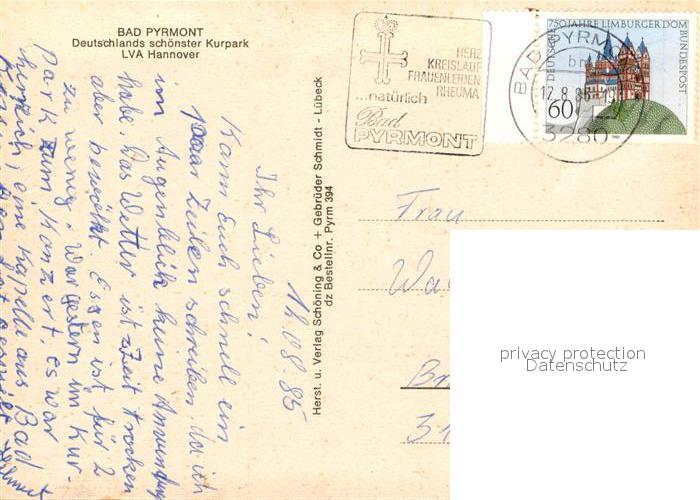 BAD PYRMONT
Deutschlands schönster Kurpark
LVA Hannover
HERZ
KREISLAUF
FRAUENLEIDEN
RHEUMA
...natürlich
Bad
PYRMONT
BAD PYRM
12.8.85-19
3280
750 JAHRE LIMBURGER DOM
DEUTSCHE BUNDESPOST
60
Herst. u. Verlag Schöning & Co + Gebrüder Schmidt - Lübeck
dz Bestellnr. Pyrm 394
Frau
31
privacy protection
Datenschutz
08.85
Ihr Lieben!
Kann Euch schnell ein
paar Zeilen schreiben da ich
im Augenblick keine Anwendung
habe. Das Wetter ist Zeit trocken
aber bewölkt. Essen ist für 2
zu wenig. War gestern im Kur-
park zum Konzert, es war
herrlich, eine Kapelle aus Bad